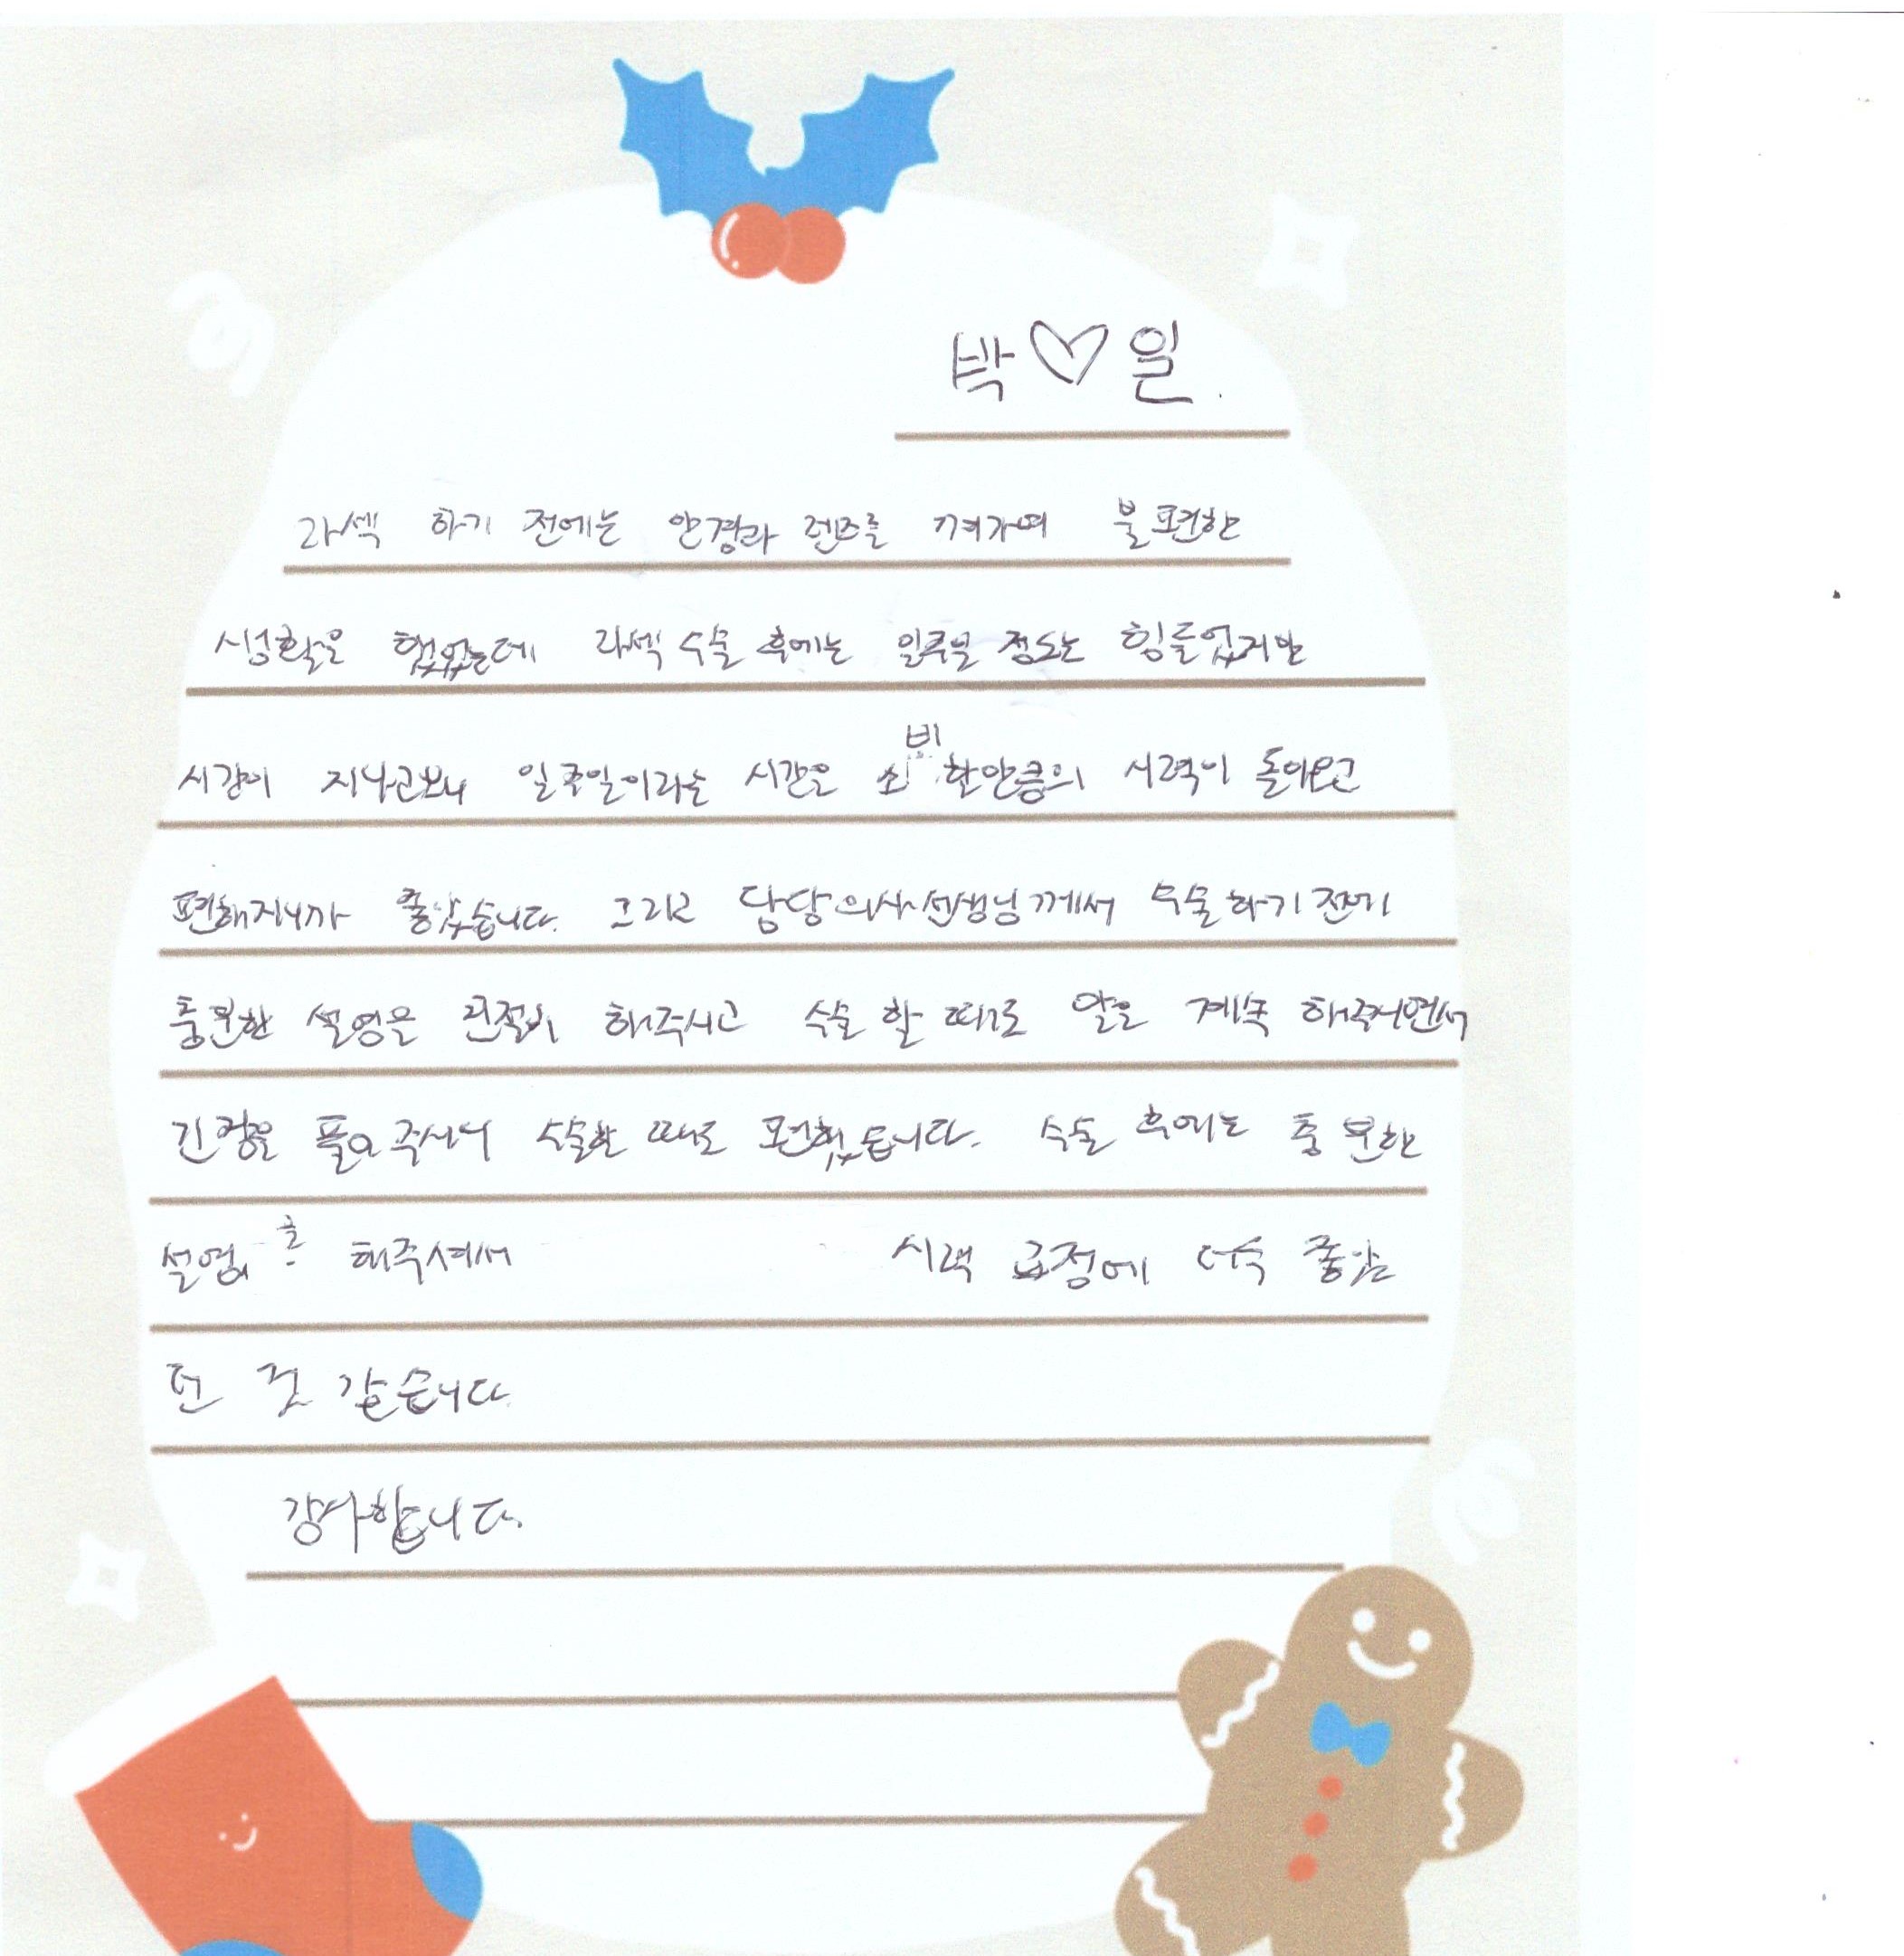 박♡일.
라섹 하기 전에는 안경과 렌즈를 껴가며 불편한
생활을 했었는데 라섹 수술 후에는 일주일 정도는 힘들었지만
시간이 지나고보니 일주일이라는 시간은 비한만큼의 시력이 돌아오고
편해지니까 좋았습니다. 그리고 담당의사선생님께서 수술하기전에
충분한 설명을 해주시고 수술 할 때도 말을 계속 해주시면서
긴장을 풀어주시니 수술할 때도 편했습니다. 수술 후에는 충분한
설명을 해주셔서 시력 교정에 더욱 좋았
던 것 같습니다.
감사합니다.